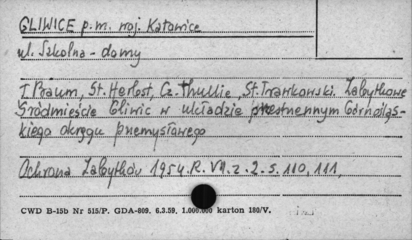 GLIWICE p.m. woj. Katowice
ul. Szkolna - domy
T. Baum, St. Herlost, Cz. Thullie, St. Trawkowski. Zabytkowe
Śródmieście Gliwic w układzie przestrzennym Górnośląs-
kiego okręgu przemysławego
Ochrona Zabytków 1954. R. VII. z. 2. s. 110, 111.
CWD B-15b Nr 515/P. GDA-809. 6.3.59. 1.000.000 karton 180/V.